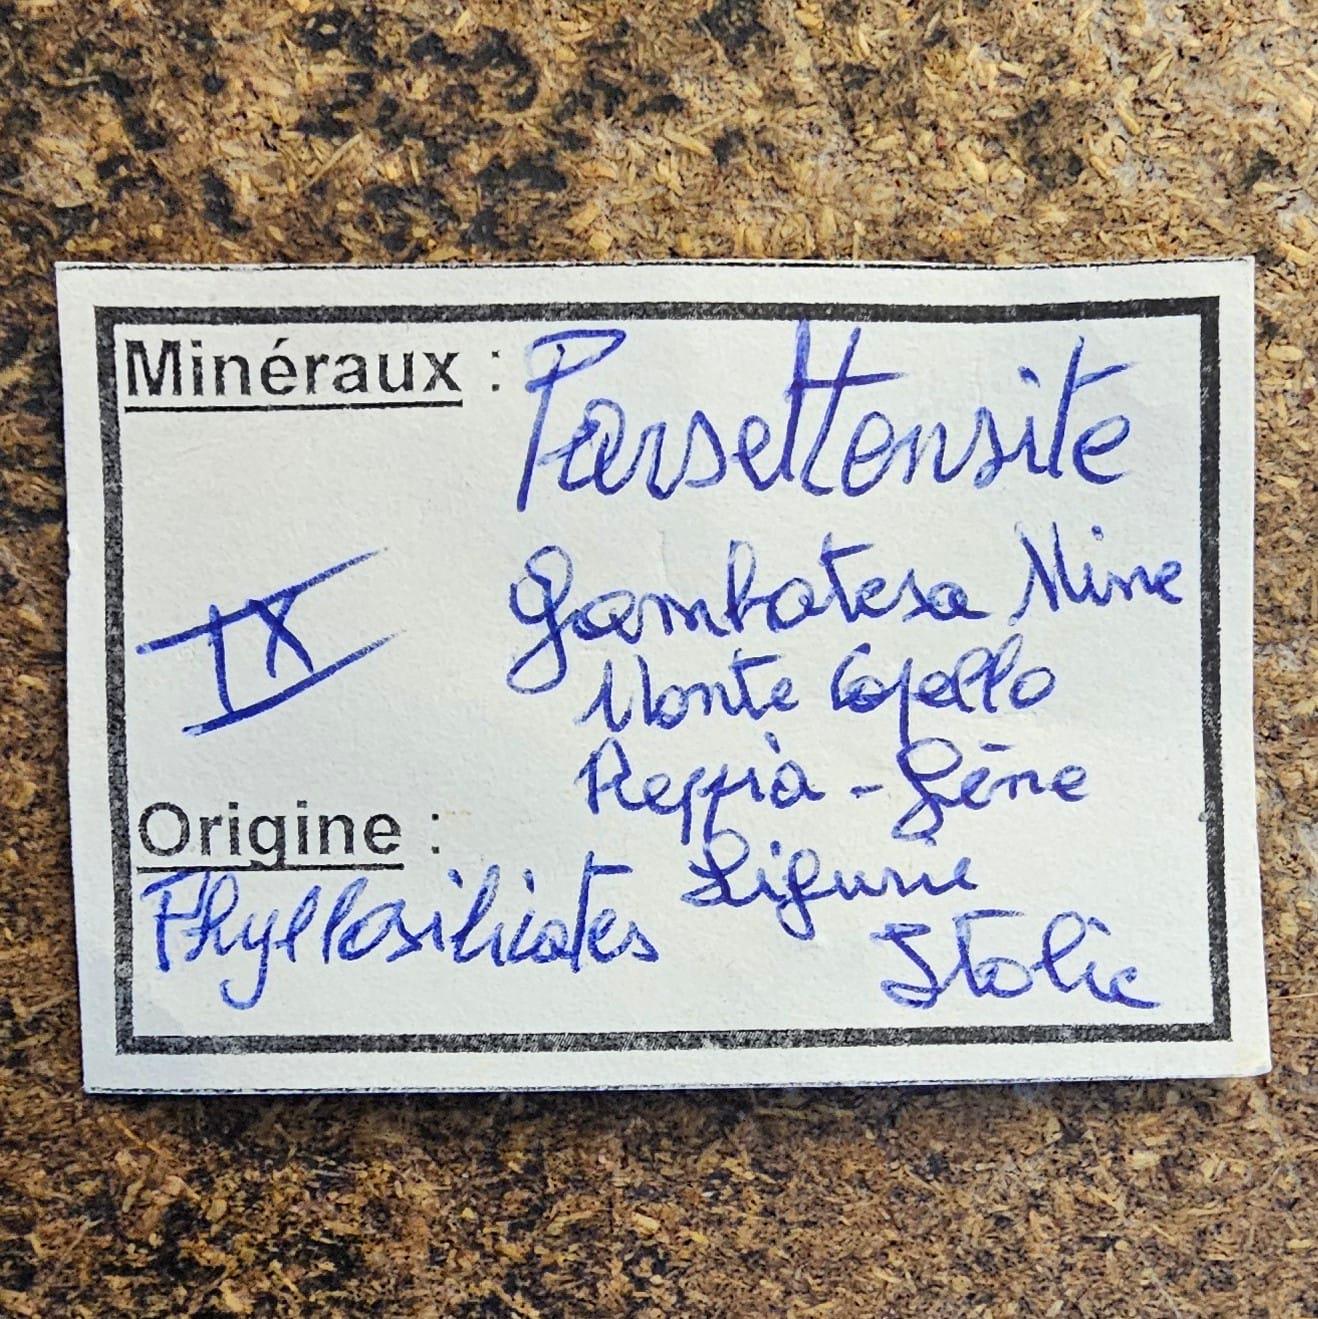 Minéraux : Parsettensite
Gambatesa Mine
IX
Monte Copello
Reppia - Gêne
Origine :
Ligurie
Phyllosilicates
Italie